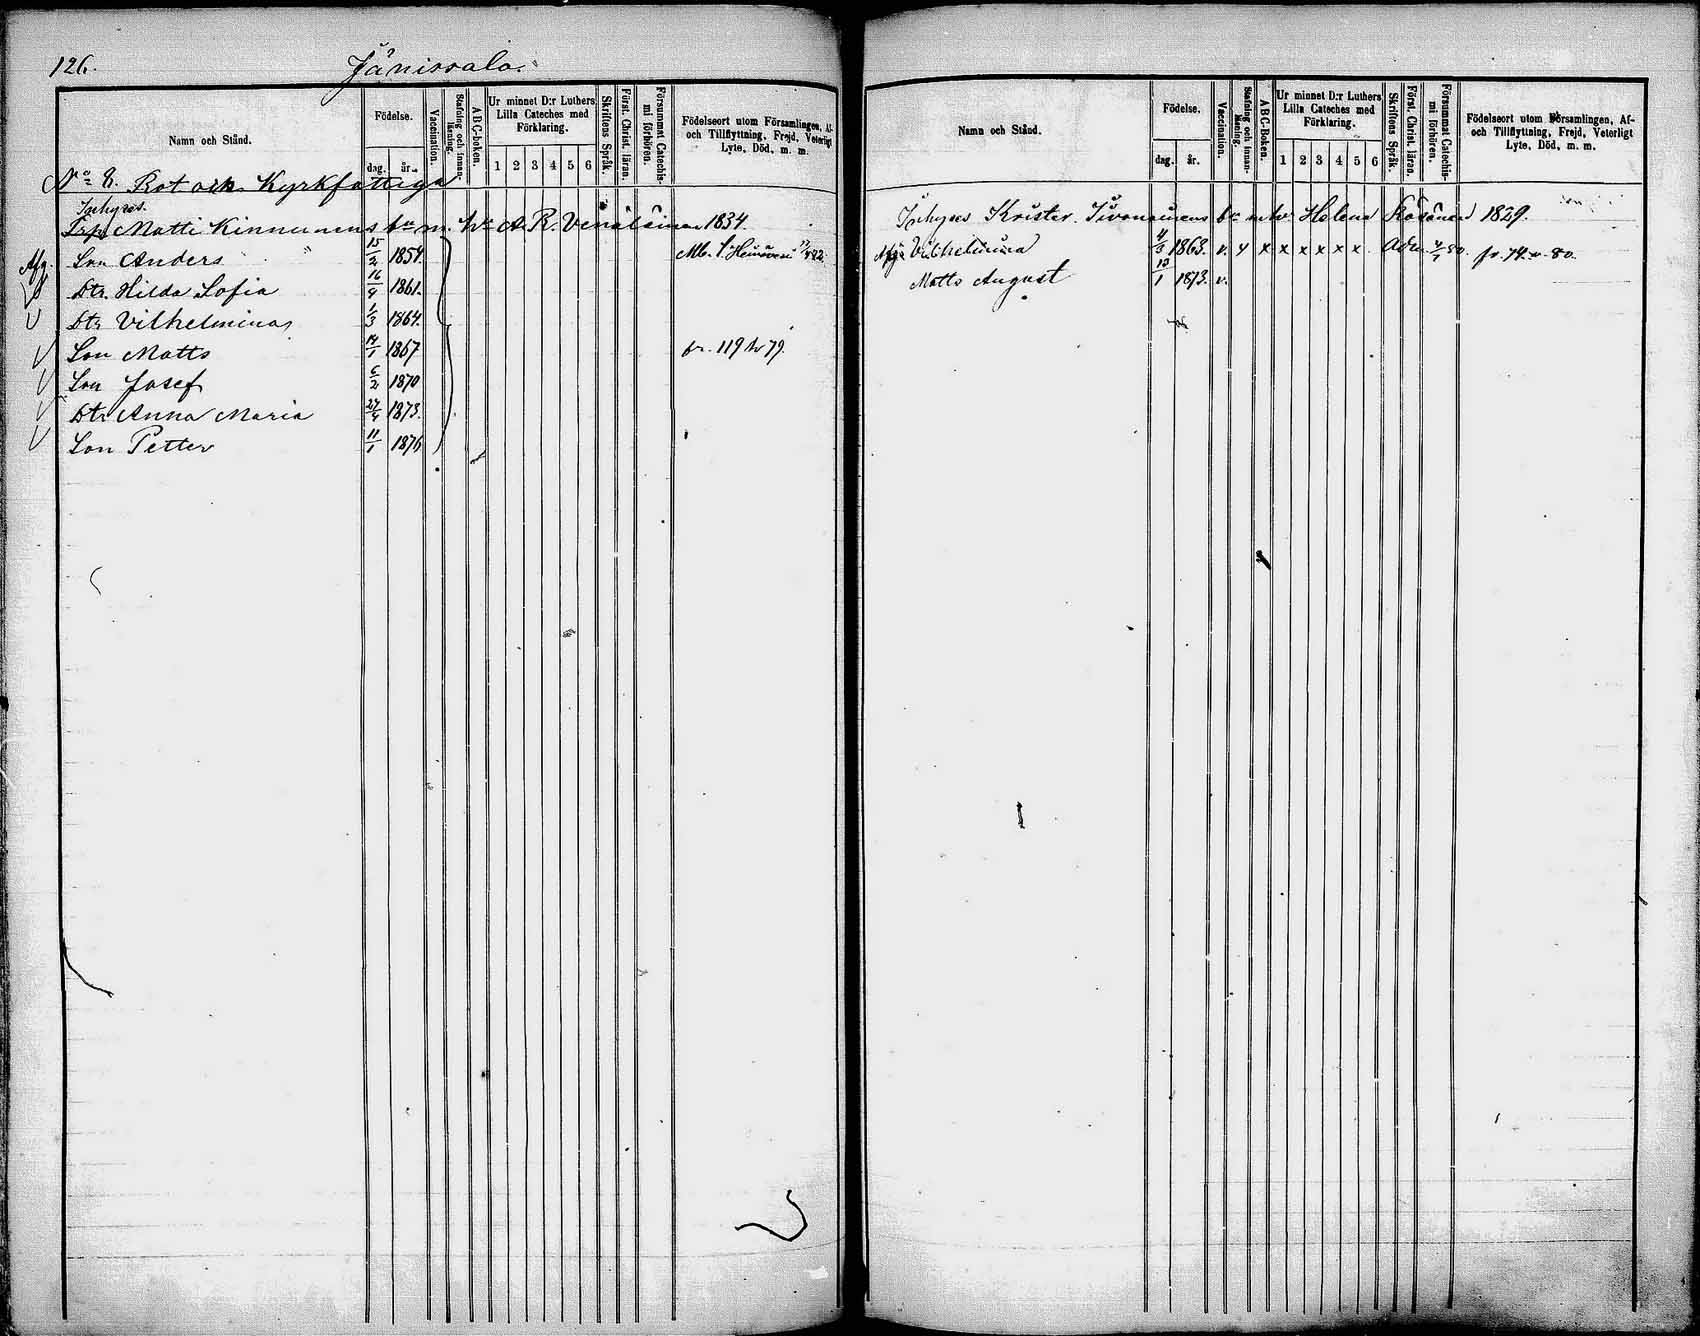 126.
Jänissalo.
Namn och Stånd.
Födelse.
dag. år.
Vaccination.
Stafning och innanläsning.
A B C-boken.
Ur minnet D:r Luthers Lilla Cateches med Förklaring.
1 2 3 4 5 6
Skriftens Språk.
Först. Christ. läran.
Försummat Catechismi förhören.
Födelseort utom Församlingen, Af- och Tillflyttning, Frejd, Veterligt Lyte, Död, m. m.
No 8. Rot och Kyrkfattiga
Inhyses.
Matti Kinnunens bn m. hu A. R. Venäläinen 1834.
Afg. Son Anders 15/2 1854.
Dtr. Hilda Sofia 16/9 1861.
Dtr Vilhelmina 1/3 1864.
Son Matts 14/1 1867 fr. 119 79.
Son Josef 6/2 1870
Dtr Anna Maria 27/9 1873.
Son Petter 11/1 1876
Namn och Stånd.
Födelse.
dag. år.
Vaccination.
Stafning och innanläsning.
A B C-Boken.
Ur minnet D:r Luthers Lilla Cateches med Förklaring.
1 2 3 4 5 6
Skriftens Språk.
Först. Christ. läran.
Försummat Catechismi förhören.
Födelseort utom Församlingen, Af- och Tillflyttning, Frejd, Veterligt Lyte, Död, m. m.
Inhyses Krister bn m hu Helena Kosonen 1829.
Vilhelmina 4/3 1863. v. x x x x x x x. Adm. 80. fr. 74. 80.
Matts August 12/1 1873. v.